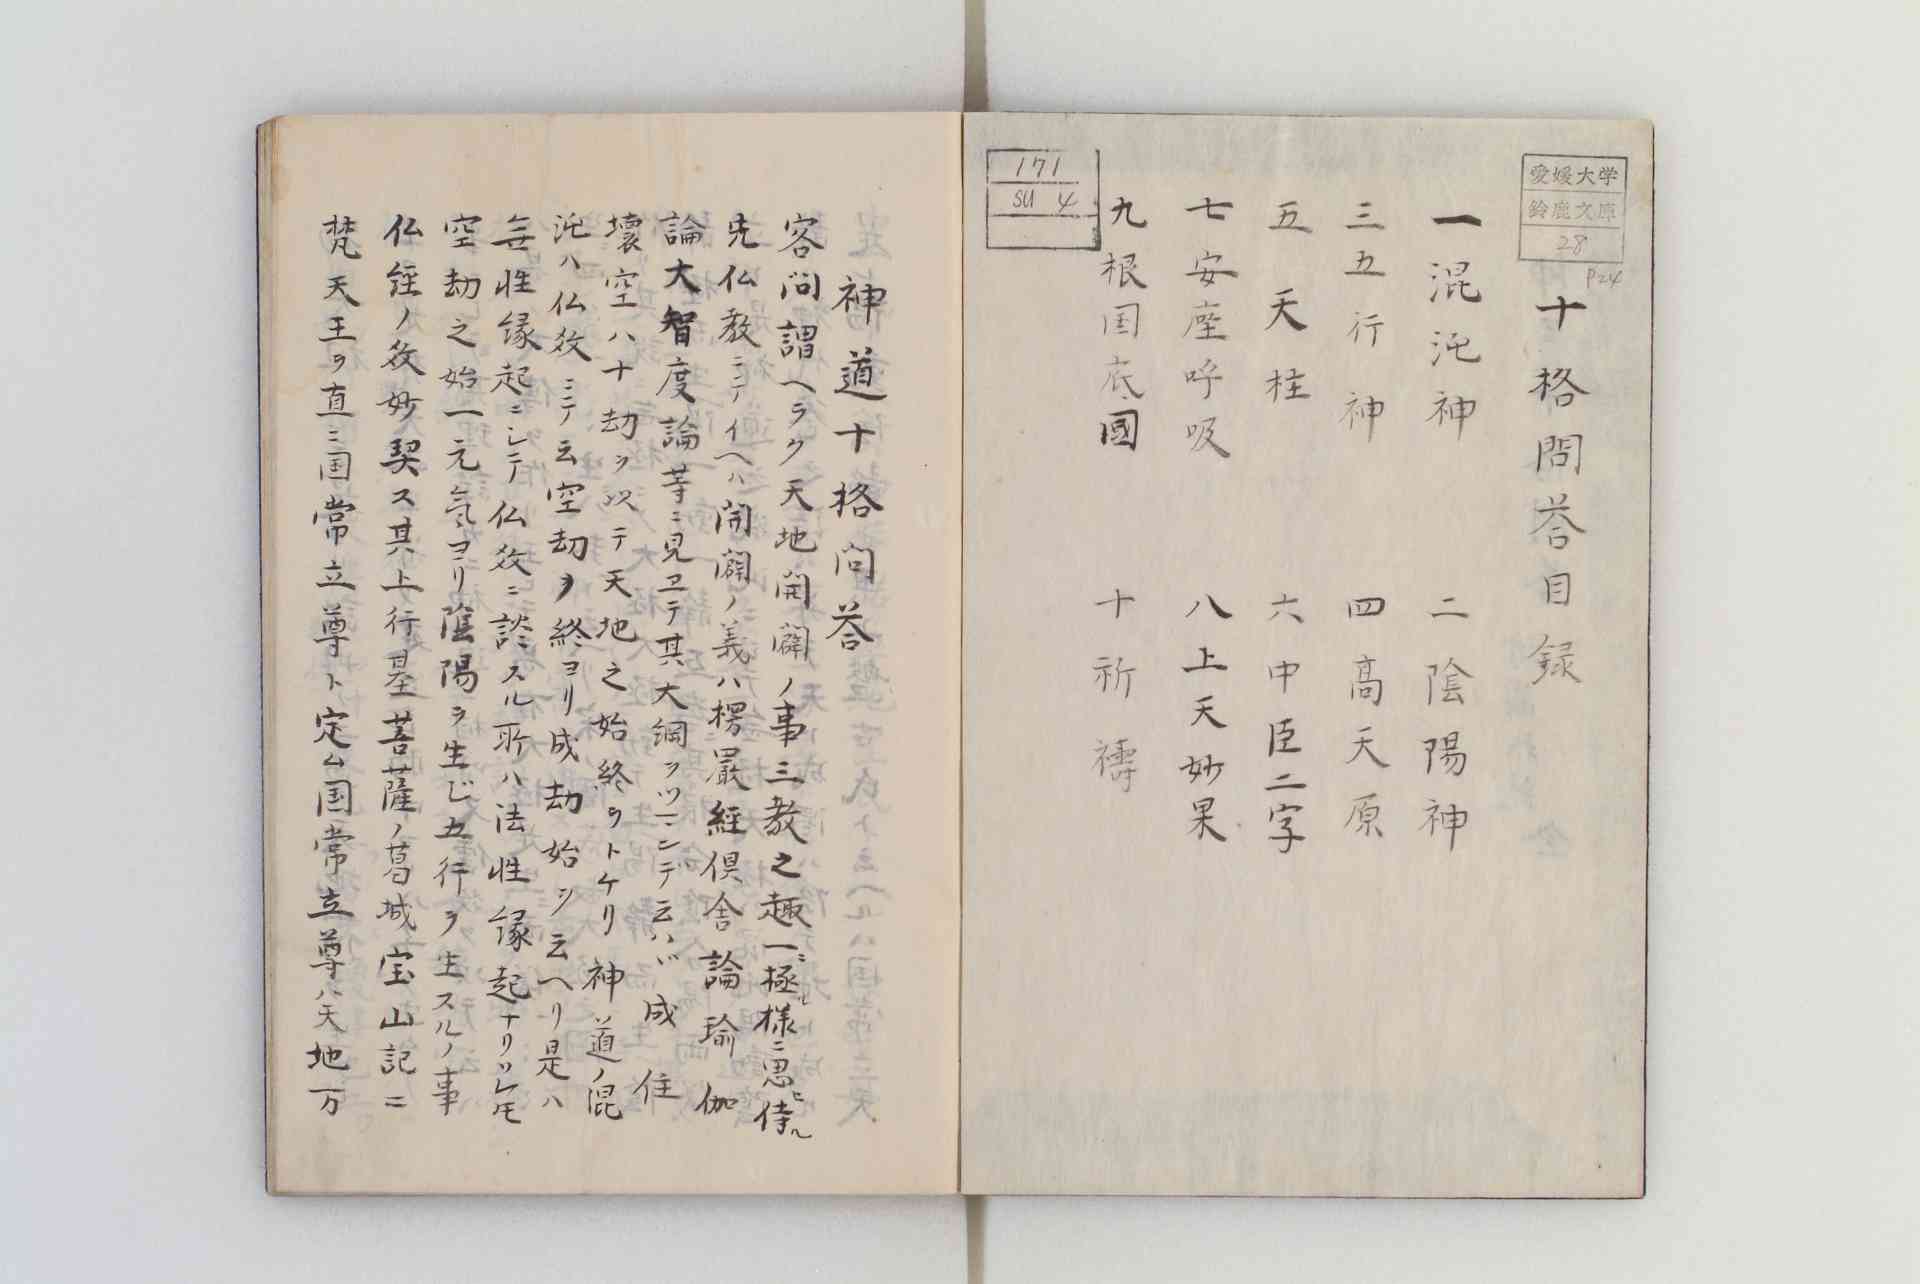 愛媛大学
鈴鹿文庫
28
P24
十格問答目録
一混沌神 二陰陽神
三五行神 四高天原
五天柱 六中臣二字
七安座呼吸 八上天妙果
九根国底國 十祈禱
171
SU 4
神道十格問答
客問謂ヘラク天地開闢ノ事三教之趣一極様ニ思侍ル
先仏教ニテイヘハ開闢ノ義ハ楞嚴經倶舎論瑜伽
論大智度論等ニ見ヱテ其大綱ヲツマンデ云ハヾ成住
壞空ハ十劫ヲ以テ天地之始終ヲトケリ神道ノ混
沌ハ仏教ニテ云空劫ヲ終ヨリ成劫始ヲ云ヘリ是ハ
無性縁起ニシテ仏教ニ談スル所ハ法性縁起ナリソレモ
空劫之始一元気ヨリ陰陽ヲ生じ五行ヲ生スルノ事
仏經ノ教妙契ス其上行基菩薩ノ葛城宝山記ニ
梵天王ヲ直ニ国常立尊ト定ム国常立尊ハ天地万